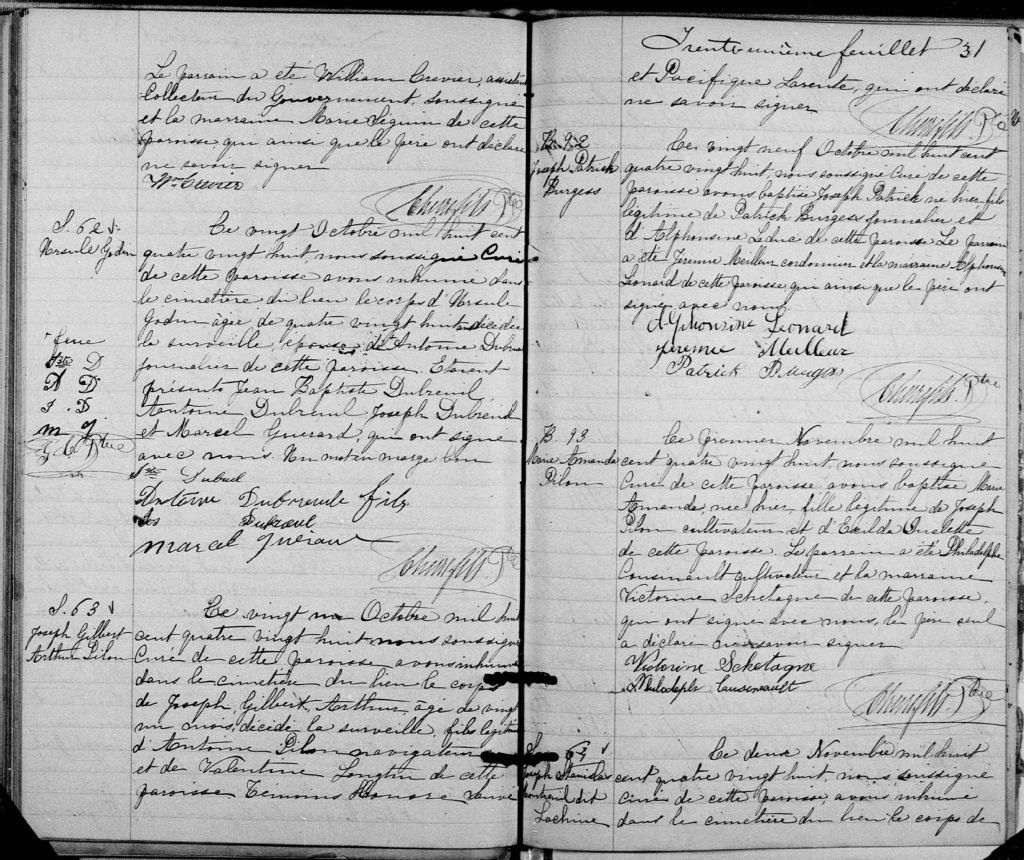 Le parrain a été William Crevier, assistant
Collecteur du Gouvernement, soussigné
et la marraine Marie Séguin de cette
paroisse qui ainsi que le père ont déclaré
ne savoir signer
Wm Crevier
S. 62
Ursule Godin
Ce vingt Octobre mil huit cent
quatre vingt huit, nous soussigné Curé
de cette paroisse avons inhumé dans
le cimetière du lieu le corps d'Ursule
Godin âgée de quatre vingt huit ans décédée
la surveille épouse de Antoine Dubreuil
journalier de cette paroisse. Etaient
présents Jean Baptiste Dubreuil
Antoine Dubreuil Joseph Dubreuil
et Marcel Guerard, qui ont signé
avec nous. Un mot en marge bon
feue
Jste D
A D
J. D
m g
Jste Dubreul
Antoine Dubreuile fils
Jos Dubreuil
Marcel Guérard
S. 63
Joseph Gilbert
Arthur Pilon
Ce vingt un Octobre mil huit
cent quatre vingt huit nous soussigné
Curé de cette paroisse avons inhumé
dans le cimetière du lieu le corps
de Joseph, Gilbert, Arthur, âgé de vingt
un mois, décédé la surveille, fils légitime
d'Antoine Pilon navigateur
et de Valentine Longtin de cette
paroisse Témoins Honoré Sauvé
Trente-unième feuillet 31
et Pacifique Larente, qui ont déclaré
ne savoir signer
B. 92
Joseph Patrick
Burgess
Ce vingt neuf Octobre mil huit cent
quatre vingt huit, nous soussigné Curé de cette
paroisse avons baptisé Joseph Patrick né hier fils
légitime de Patrick Burgess journalier et
d'Alphonsine Leduc de cette paroisse Le parrain
a été Jeremie Meilleur cordonnier et la marraine Alphonsine
Leonard de cette paroisse, qui ainsi que le père ont
signé avec nous
Alphonsine Leonard
Jeremie Meilleur
Patrick
B 93
Marie Amanda
Pilon
Ce premier Novembre mil huit
cent quatre vingt huit, nous soussigné
Curé de cette paroisse avons baptisé Marie
Amanda, née hier, fille légitime de Joseph
Pilon cultivateur et d'Exilda Ouelette
de cette paroisse. Le parrain a été Philadelphe
Cousinault cultivateur et la marraine
Victorine Schetagne de cette paroisse,
qui ont signé avec nous, le père seul
a déclaré ne savoir signer
Victorine Schetagne
Philadelph Causineault
S. 64
Joseph Stanislas
dit
Lachine
Ce deux Novembre mil huit
cent quatre vingt huit, nous soussigné
curé de cette paroisse, avons inhumé
dans le cimetière du lieu le corps de